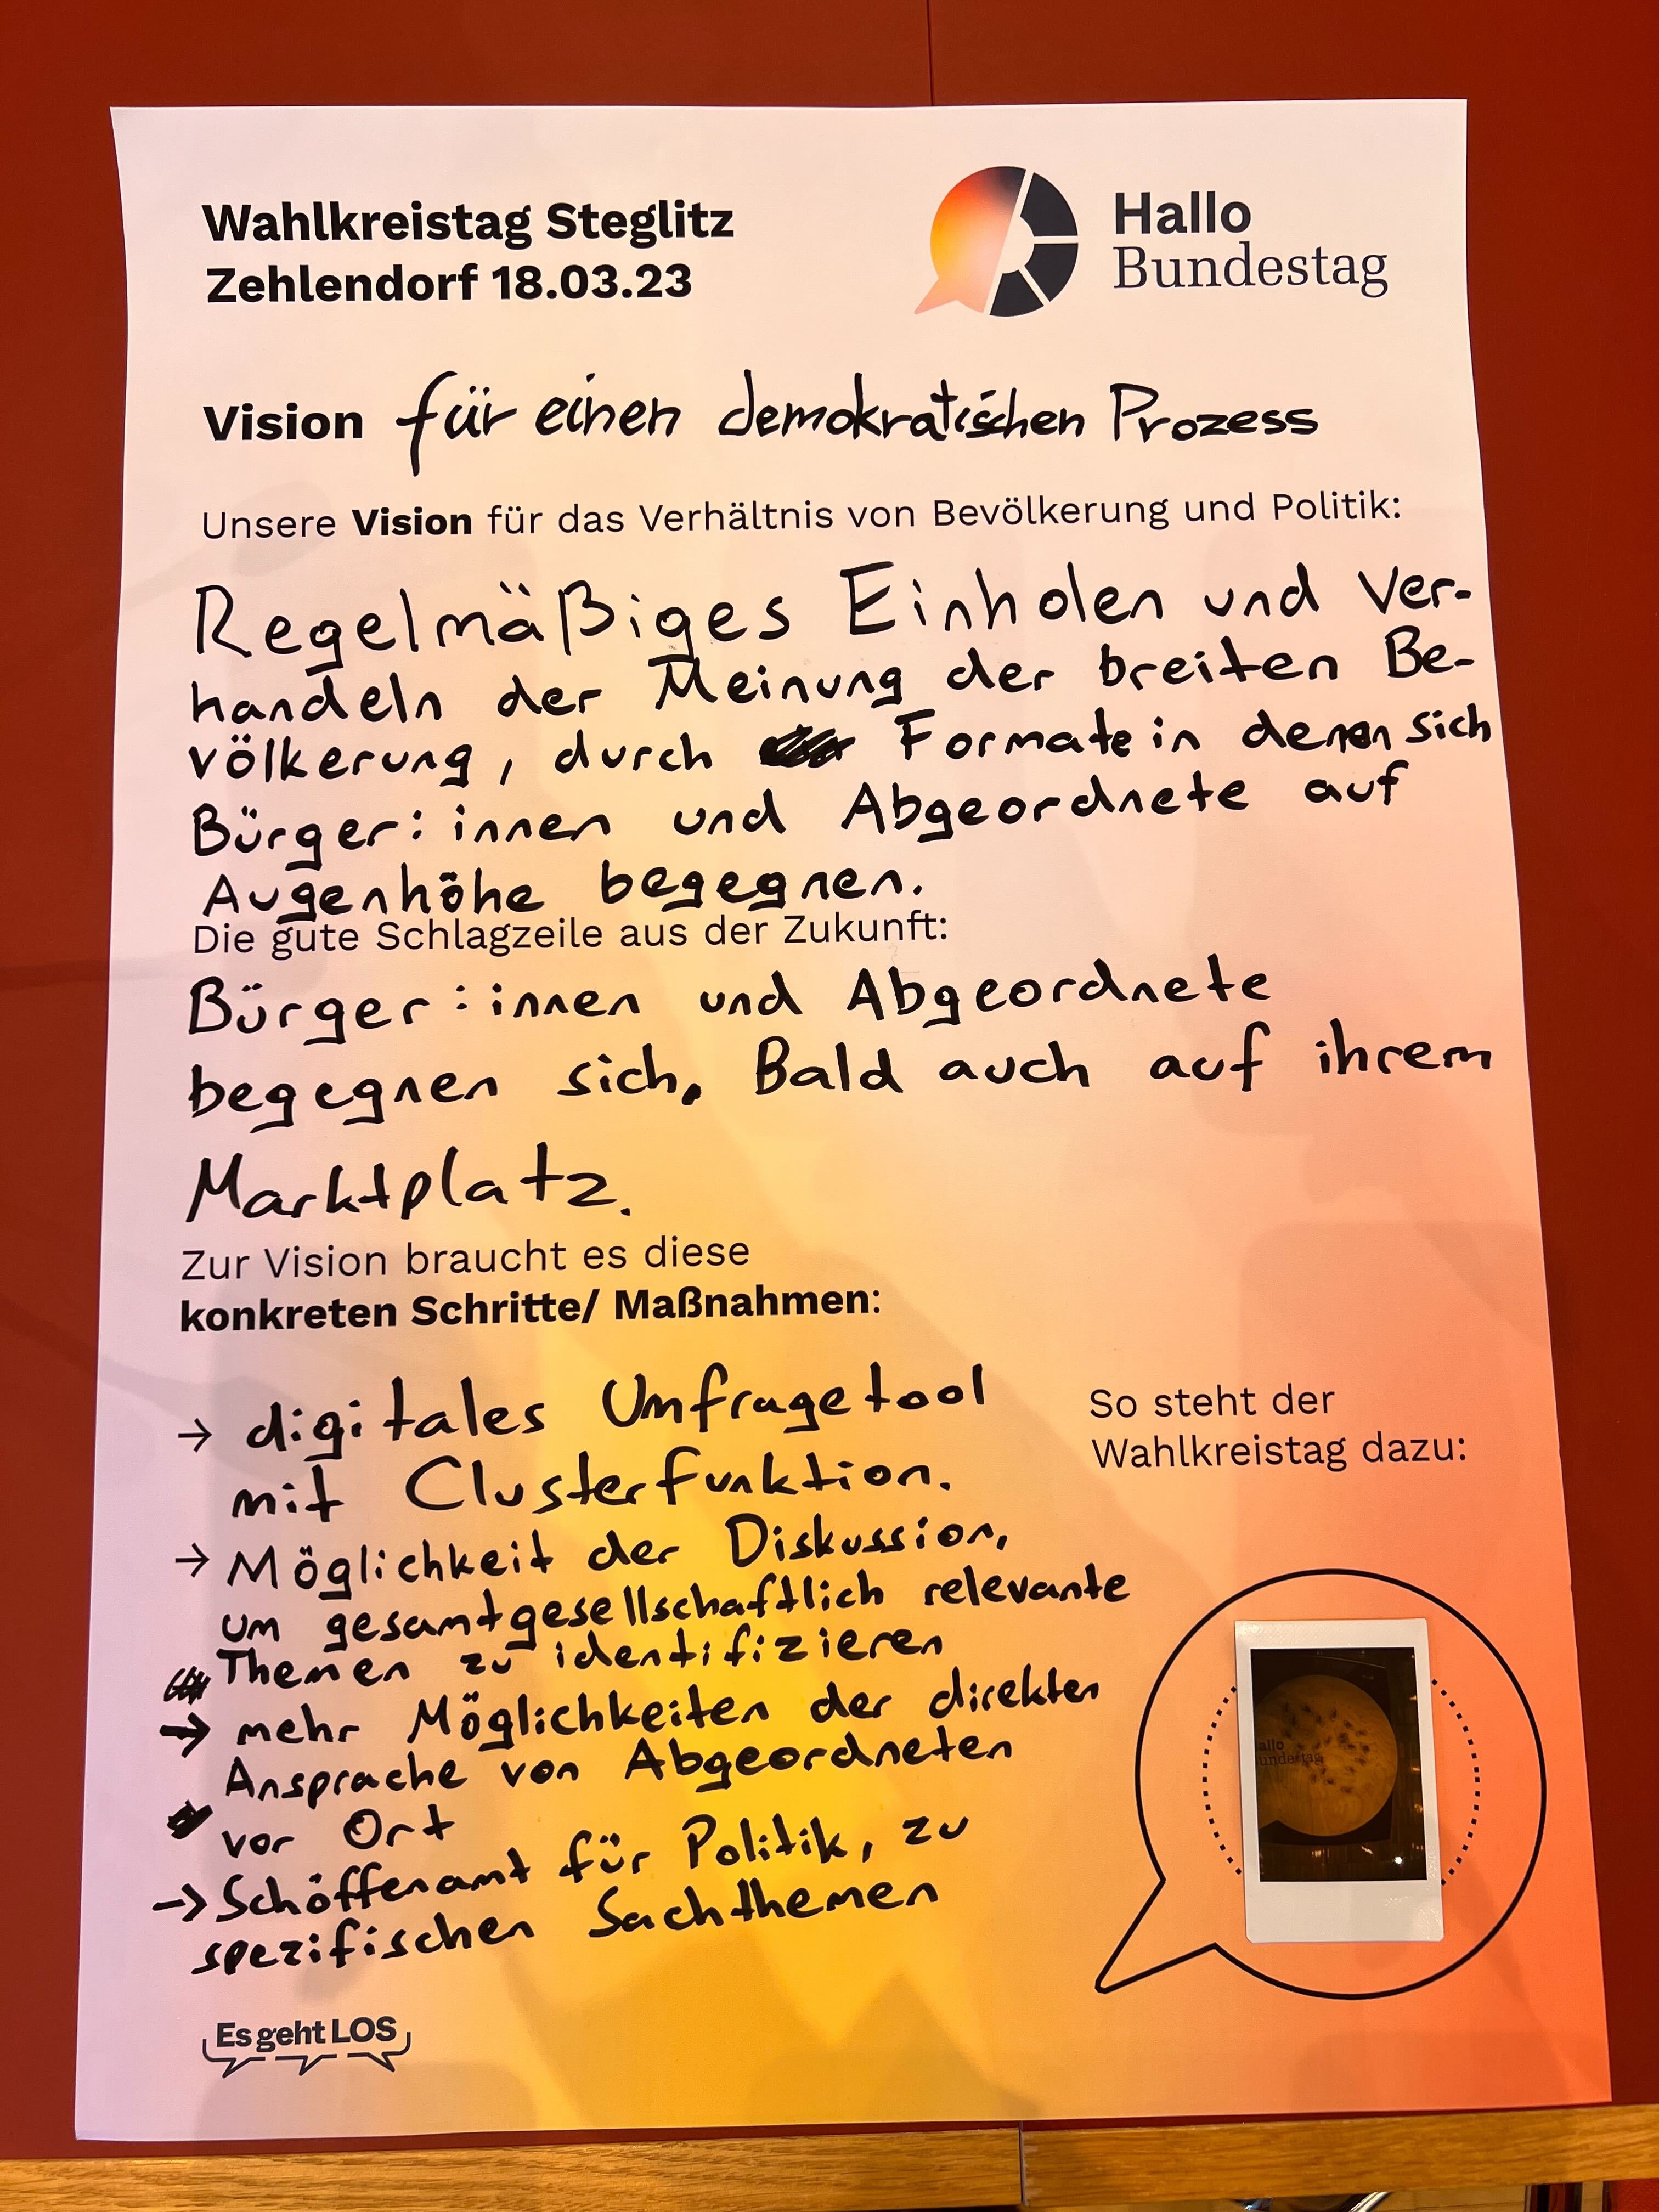 Wahlkreistag Steglitz
Zehlendorf 18.03.23
Hallo
Bundestag
Vision für einen demokratischen Prozess
Unsere Vision für das Verhältnis von Bevölkerung und Politik:
Regelmäßiges Einholen und Ver-
handeln der Meinung der breiten Be-
völkerung, durch Formate in denen sich
Bürger:innen und Abgeordnete auf
Augenhöhe begegnen.
Die gute Schlagzeile aus der Zukunft:
Bürger:innen und Abgeordnete
begegnen sich. Bald auch auf ihrem
Marktplatz.
Zur Vision braucht es diese
konkreten Schritte/ Maßnahmen:
→ digitales Umfragetool
mit Clusterfunktion.
→ Möglichkeit der Diskussion,
um gesamtgesellschaftlich relevante
Themen zu identifizieren
→ mehr Möglichkeiten der direkten
Ansprache von Abgeordneten
vor Ort
→ Schöffenamt für Politik, zu
spezifischen Sachthemen
So steht der
Wahlkreistag dazu:
allo
undestag
Es geht LOS